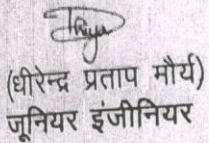 (धीरेन्द्र प्रताप मौर्य)
जूनियर इंजीनियर